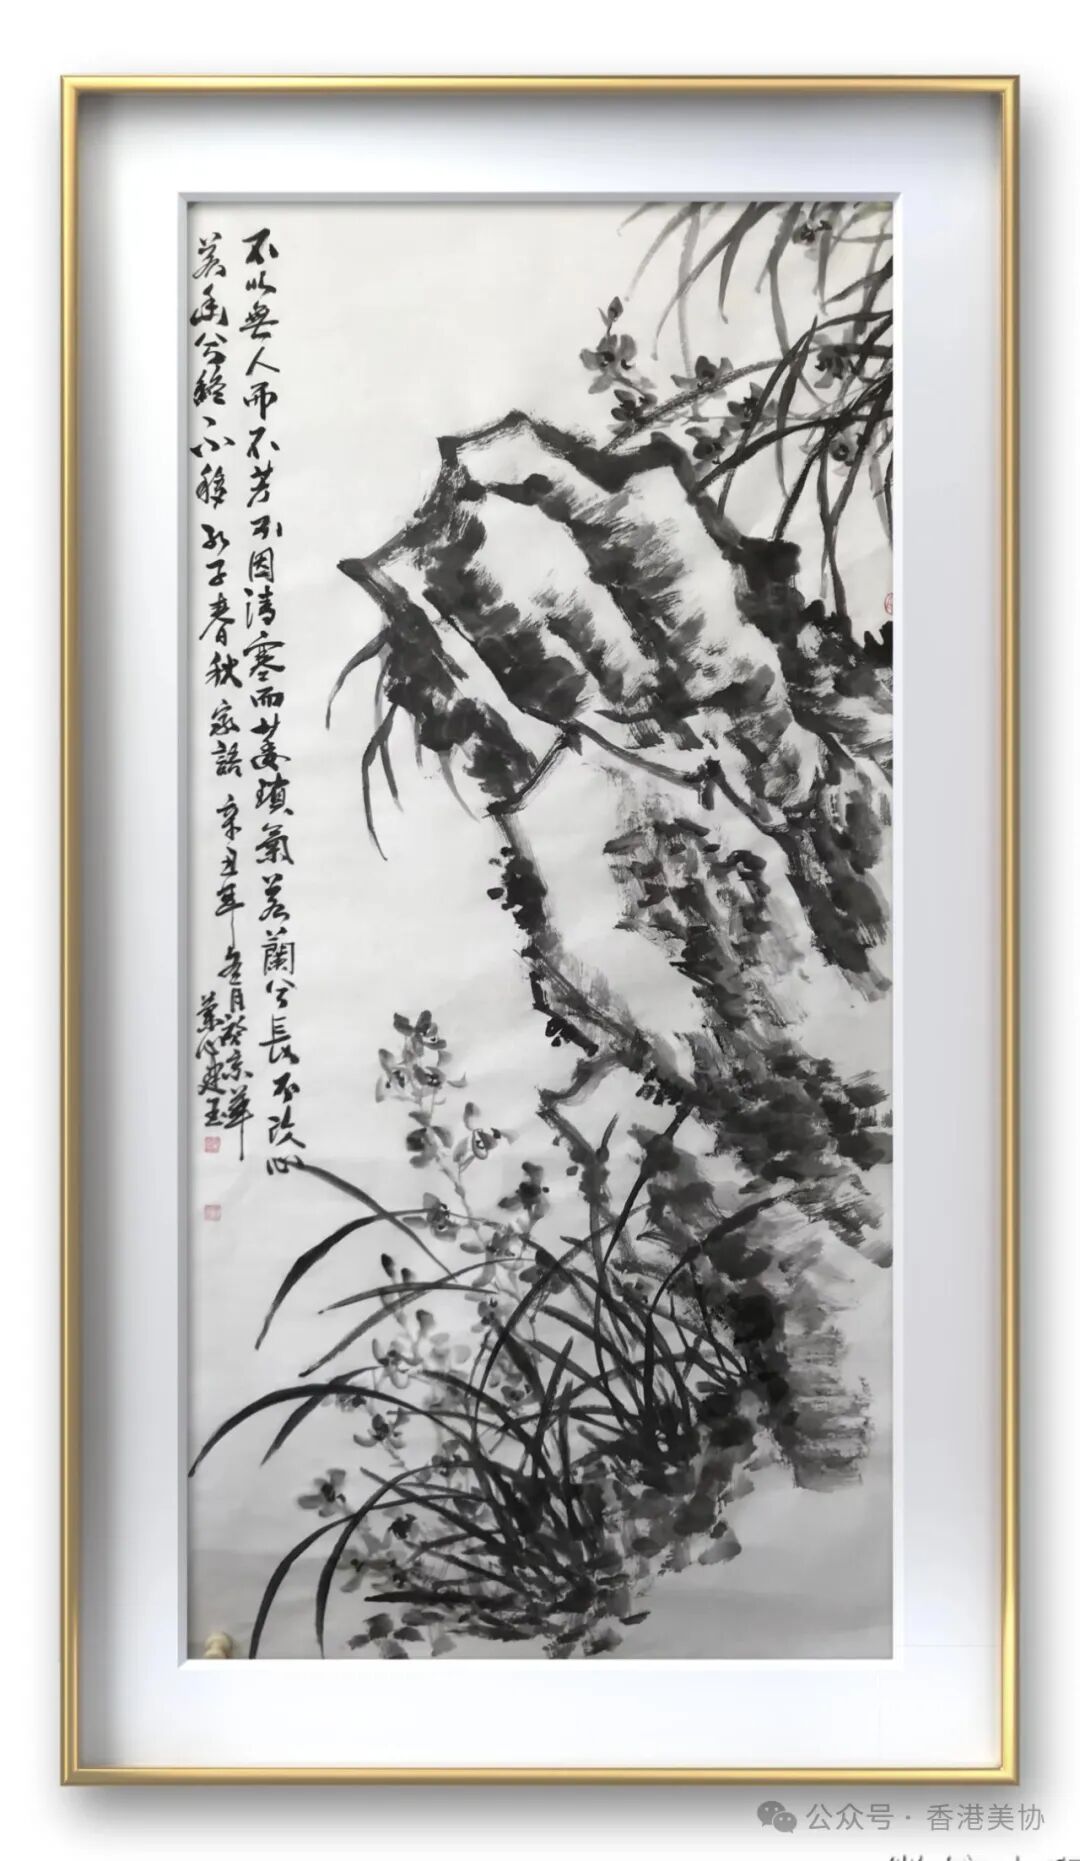 不以無人而不芳不因清寒而萎瑣氣若蘭兮長不改心
若兮終不移孔子春秋家語辛丑年冬月京華
建玉
公众号 · 香港美协